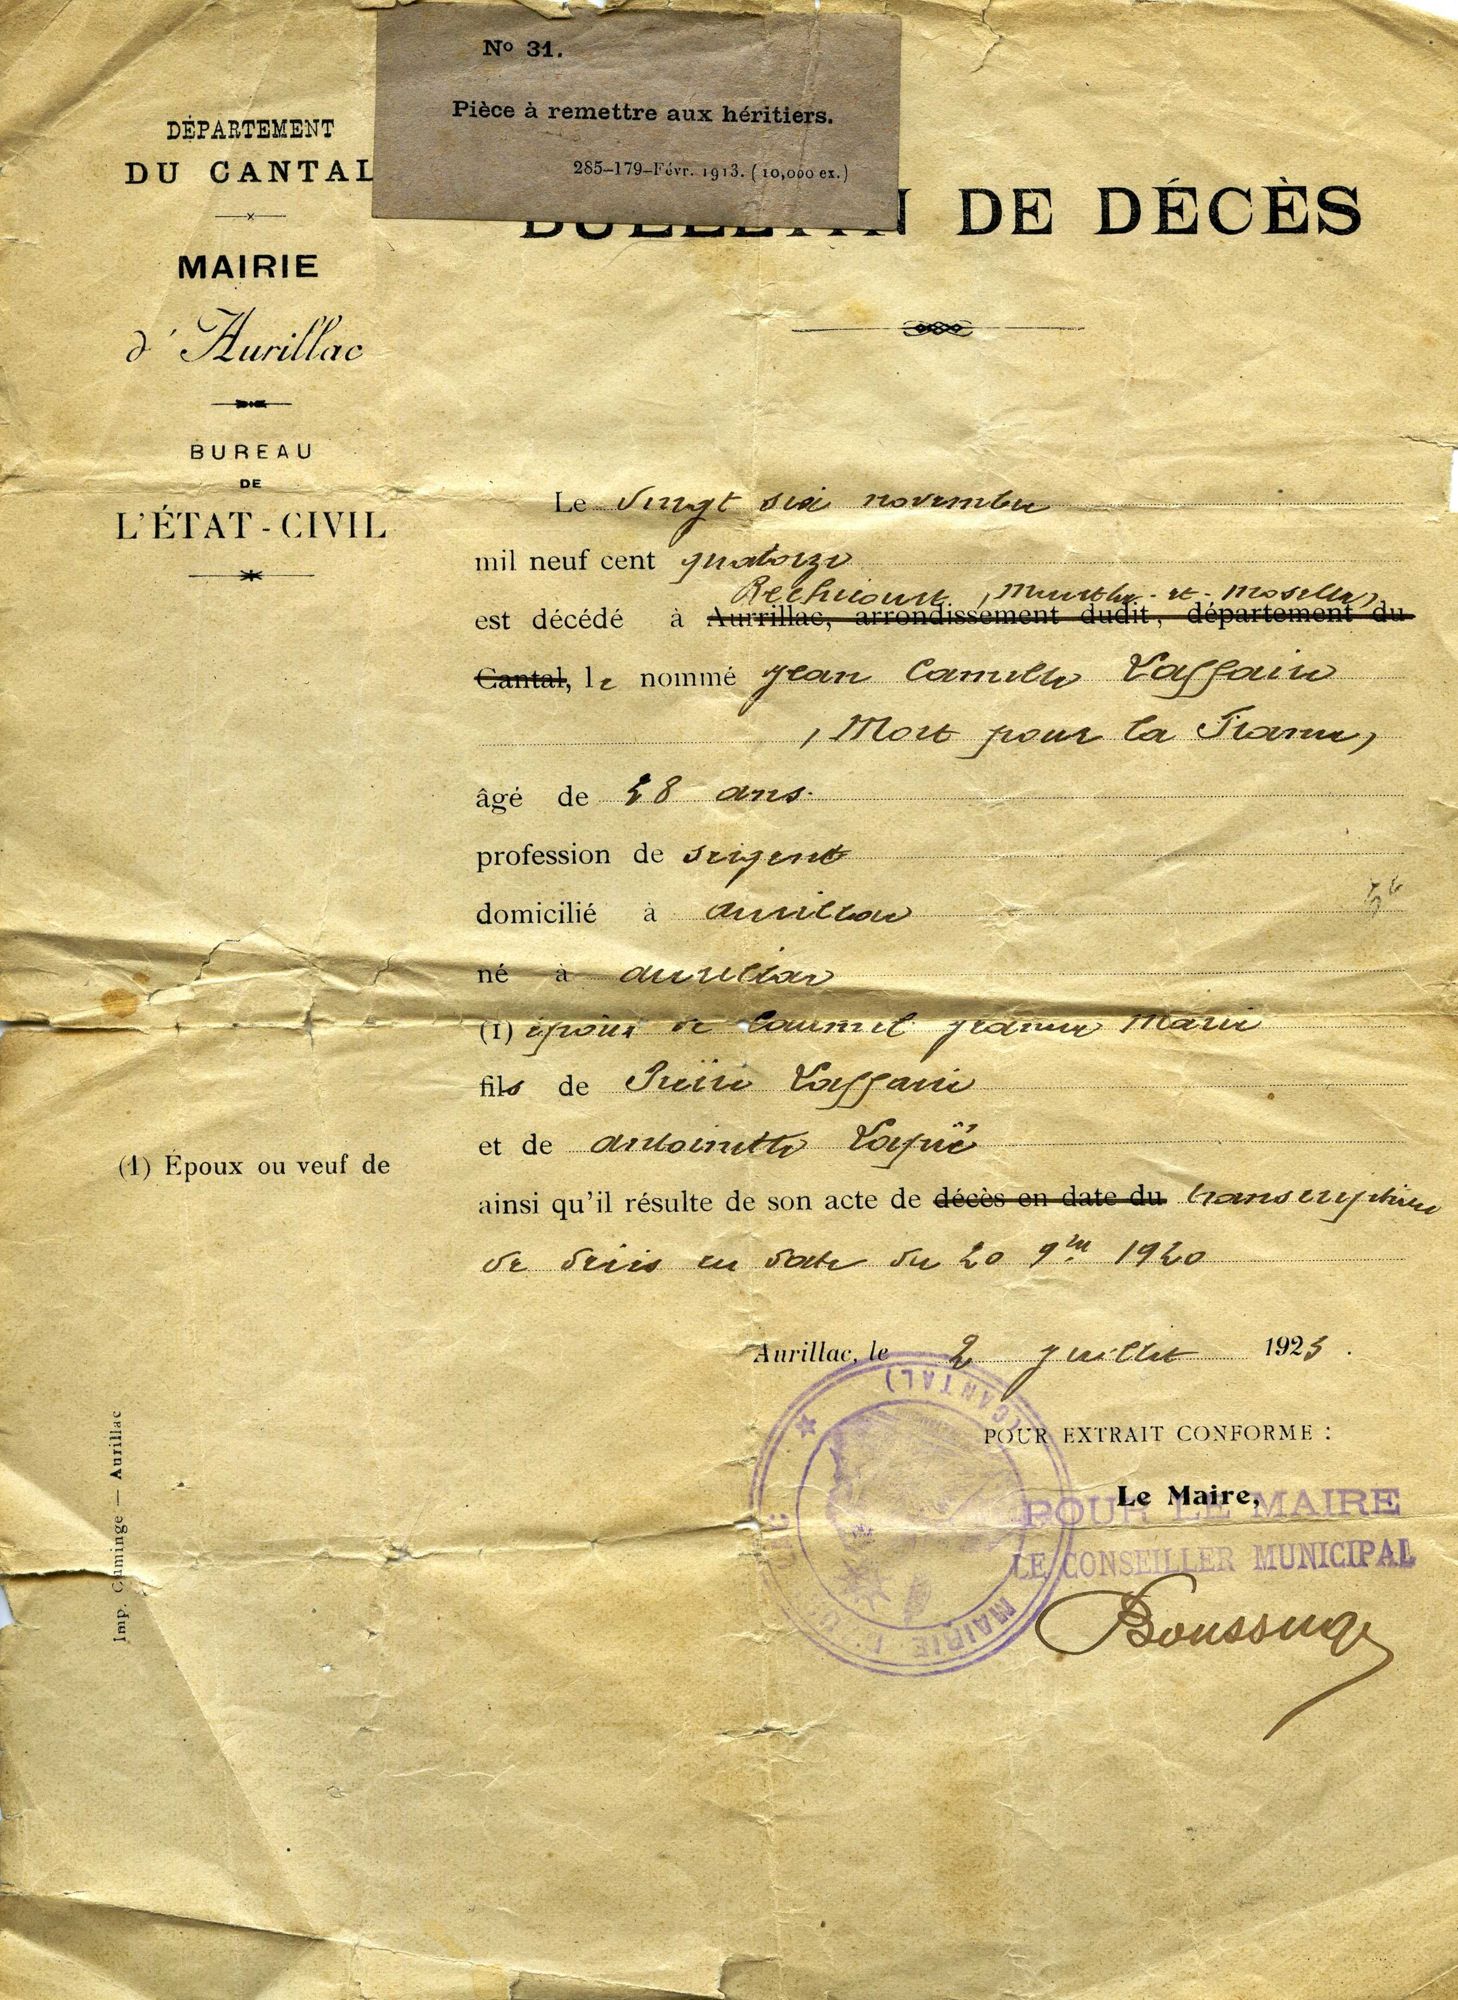 N° 31.
Pièce à remettre aux héritiers.
285-179-Févr. 1913. (10,000 ex.)
DÉPARTEMENT
DU CANTAL
MAIRIE
d'Aurillac
BUREAU
DE
L'ÉTAT-CIVIL
BULLETIN DE DÉCÈS
Le vingt six novembre
mil neuf cent quatorze
Rechicourt, Meurthe-et-Moselle,
est décédé à Aurrillac, arrondissement dudit, département du
Cantal, le nommé Jean Camille Laffaire
, Mort pour la France,
âgé de 28 ans.
profession de sergent
domicilié à Aurillac
né à Aurillac
(1) époux de Jeanne Marie
fils de Pierre Laffaire
et de Antoinette
(1) Époux ou veuf de
ainsi qu'il résulte de son acte de décès en date du transcription
de décès en date du 20 9bre 1920
Aurillac, le 2 juillet 1923.
POUR EXTRAIT CONFORME :
Le Maire,
POUR LE MAIRE
LE CONSEILLER MUNICIPAL
Boussuge
MAIRIE
(CANTAL)
Imp. Caminge — Aurillac